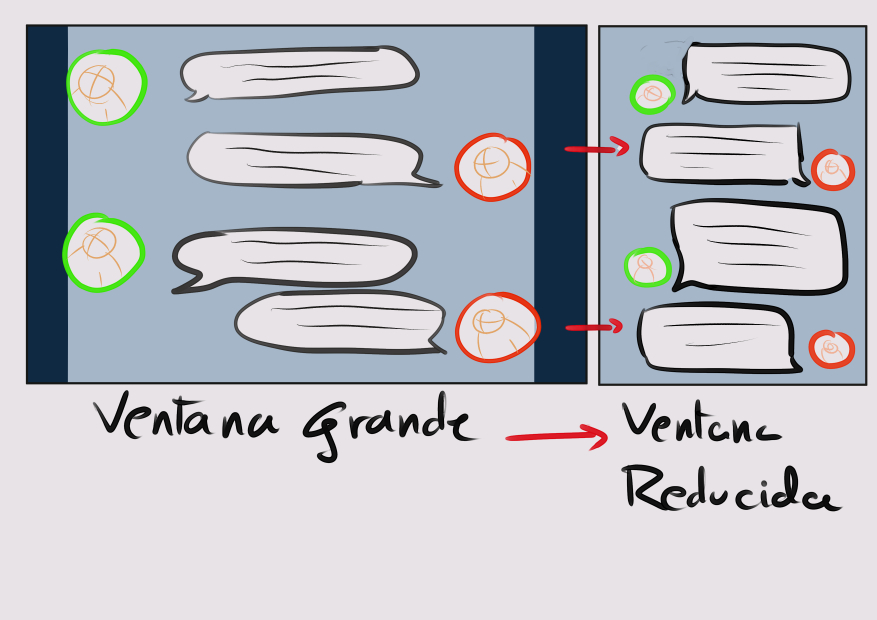 Ventana Grande
Ventana
Reducida